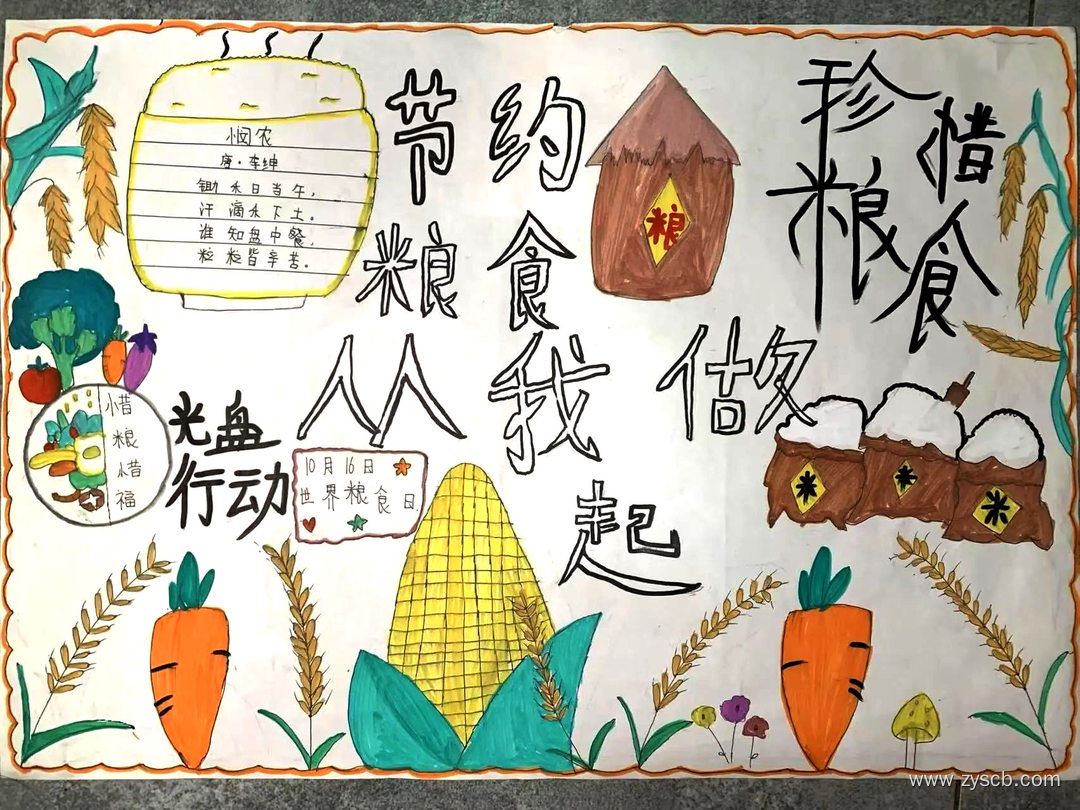 悯农
唐·李绅
锄禾日当午,
汗滴禾下土。
谁知盘中餐,
粒粒皆辛苦。
节约
粮食
从我做
起
粮
珍惜
粮食
惜
粮
惜
福
光盘
行动
10月16日
世界粮食日
米
米
米
www.zyscb.com